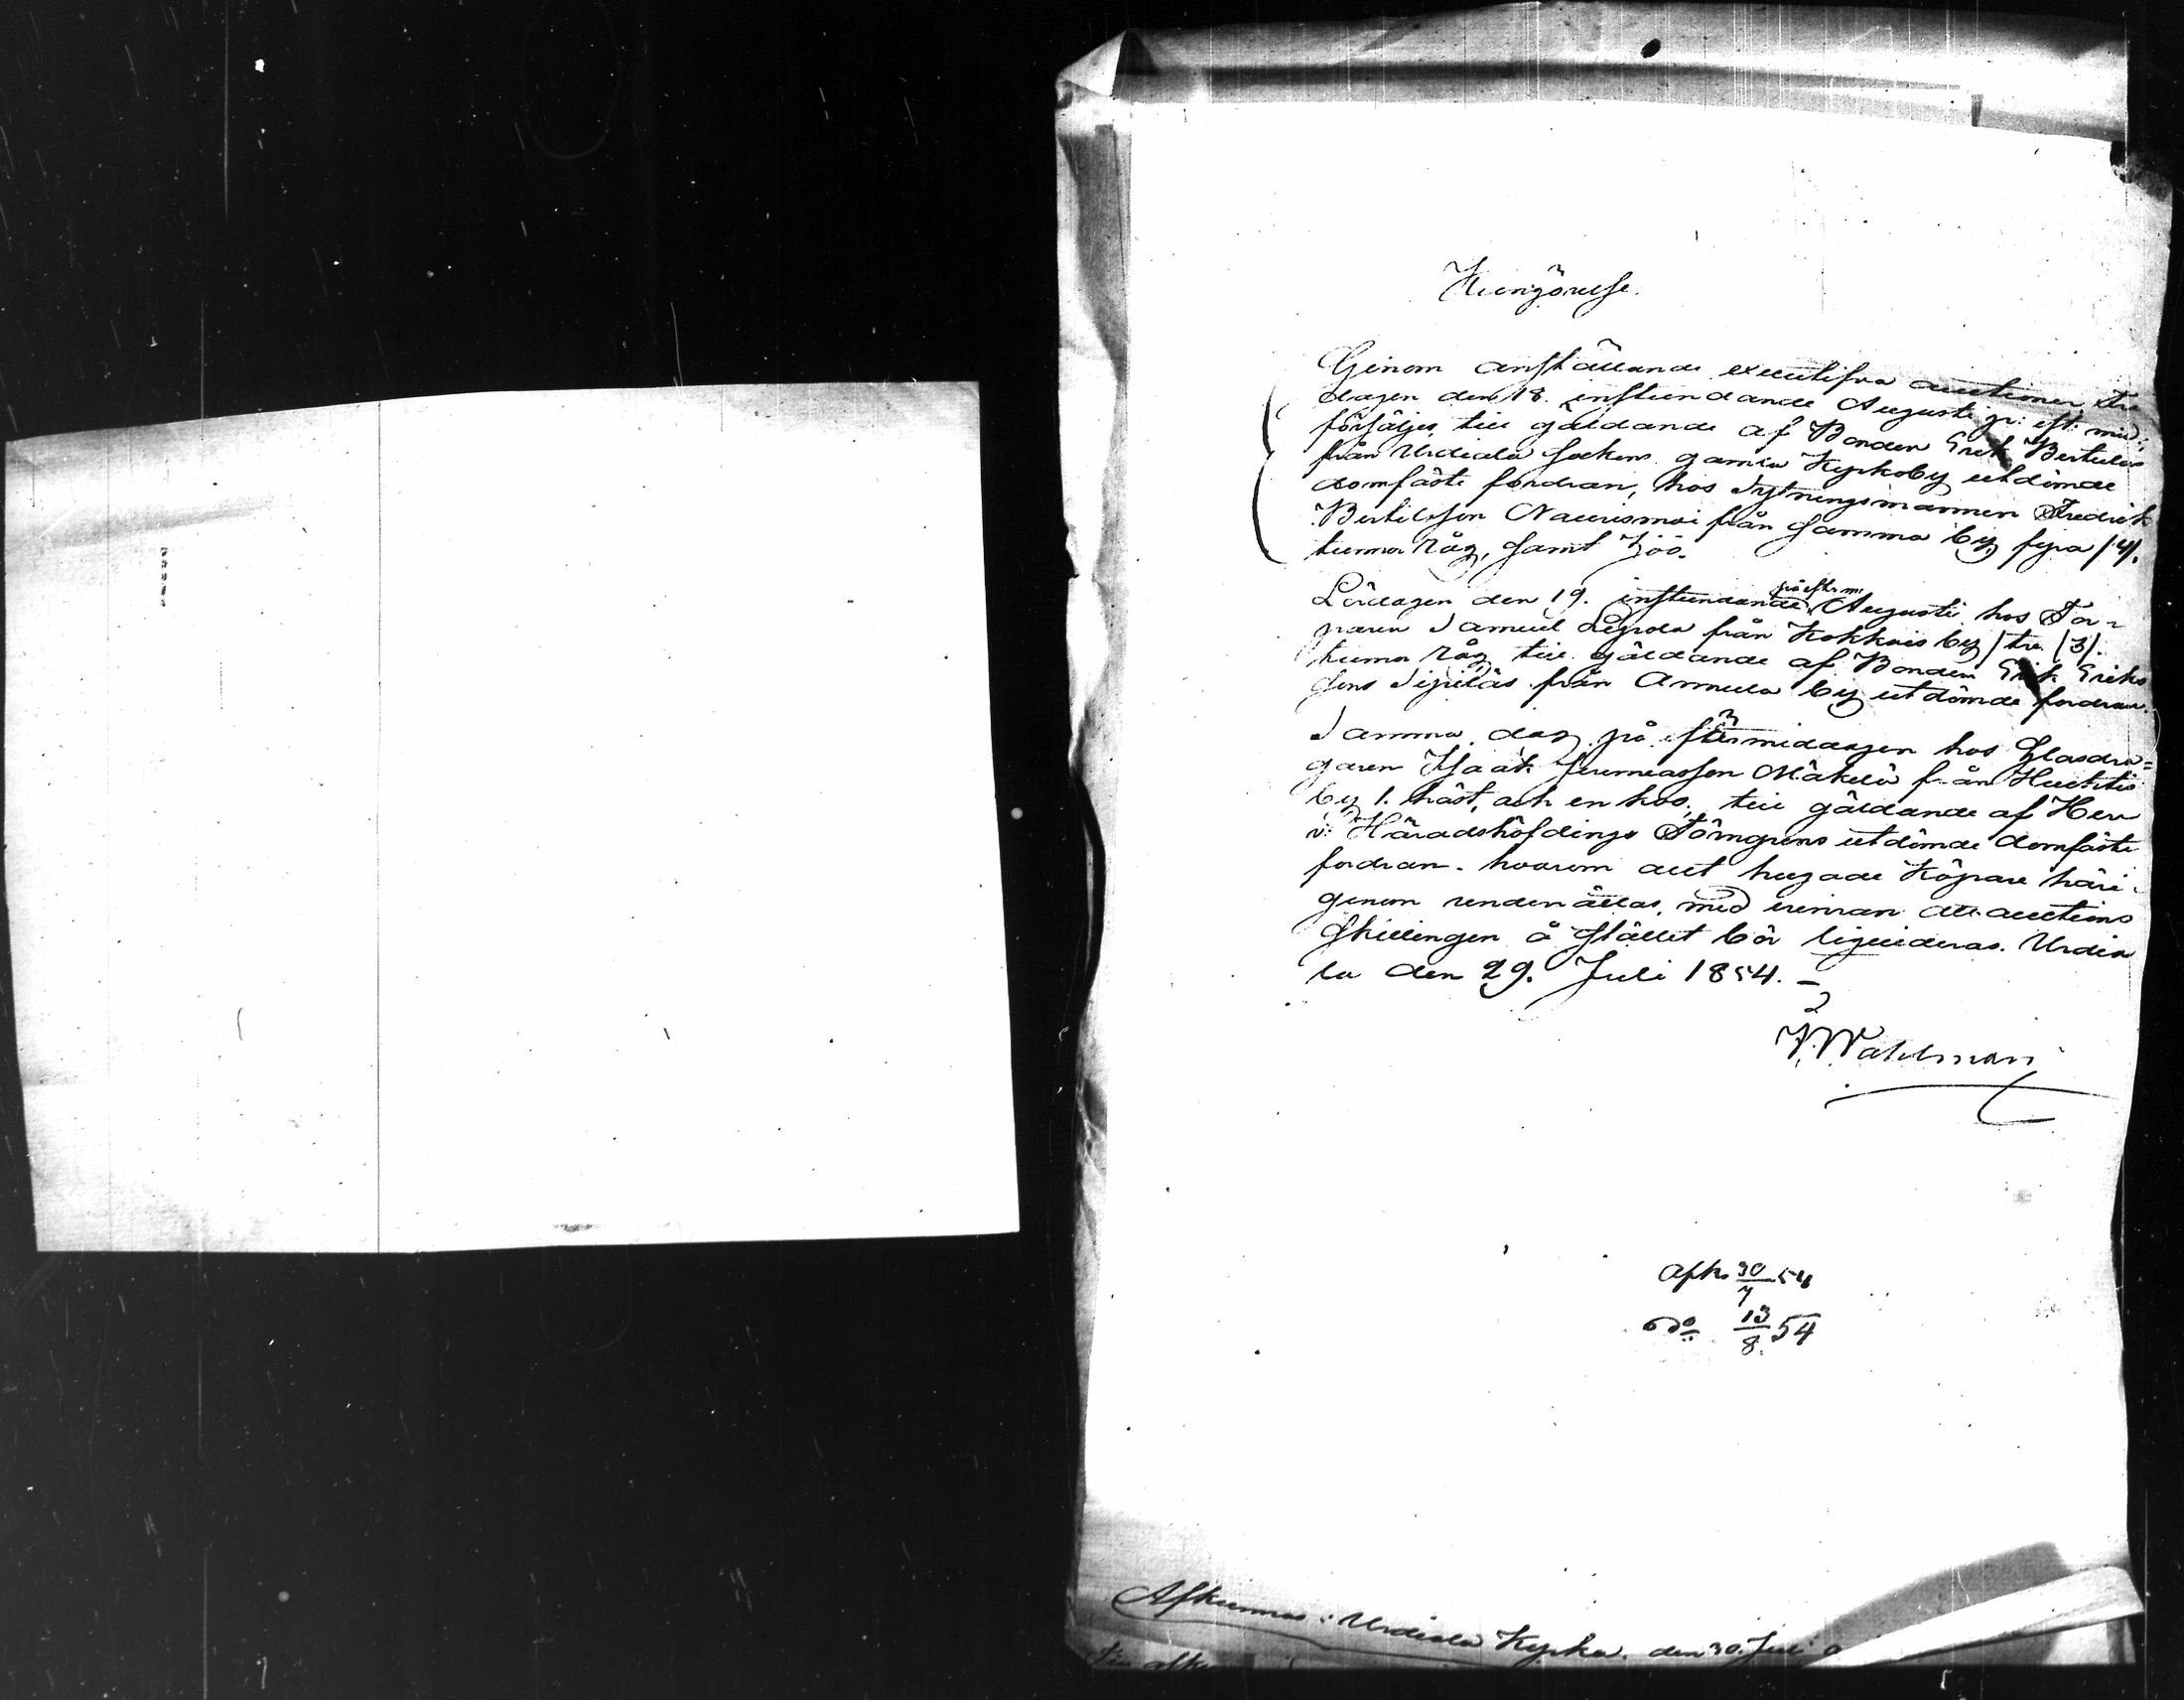 Kungörelse.
Genom anställande executifva auctioner Fre
dagen den 18. instundande Augusti på eft: mid:
försäljes till gäldande af Bonden Erik Bertils
från Urdiala Sockens gamla Kyrkoby utdömde
domfäste fordran, hos Sytningsmannen Fredrik
Bertilsson Naurismäi från samma by fyra /4/.
tunnor Råg, samt
Lördagen den 19. instundande på eftr: m: Augusti hos Tor-
paren Samuel Lepola från Kokkois by /tre /3/.
tunnor Råg till gäldande af Bonden Erik Eriks
sons Sipiläs från Annula by utdömde fordran.
Samma dag på eftermiddagen hos Glasdra-
garen Isaak Jeremiasson Mäkelä från Huhtis
by 1. häst, och en ko, till gäldande af Herr
v: Häradshöfdings Törngrens utdömde domfäste
fordran. hvarom allt hugade Köpare häri-
genom underrättas, med erinran att auctions
Skillingen å stället bör liquideras. Urdia
la den 29. Juli 1854. –
Wahlman
Afk. 30/7 54
do 13/8. 54
Afkunnas i Urdiala Kyrka. den 30. Juli